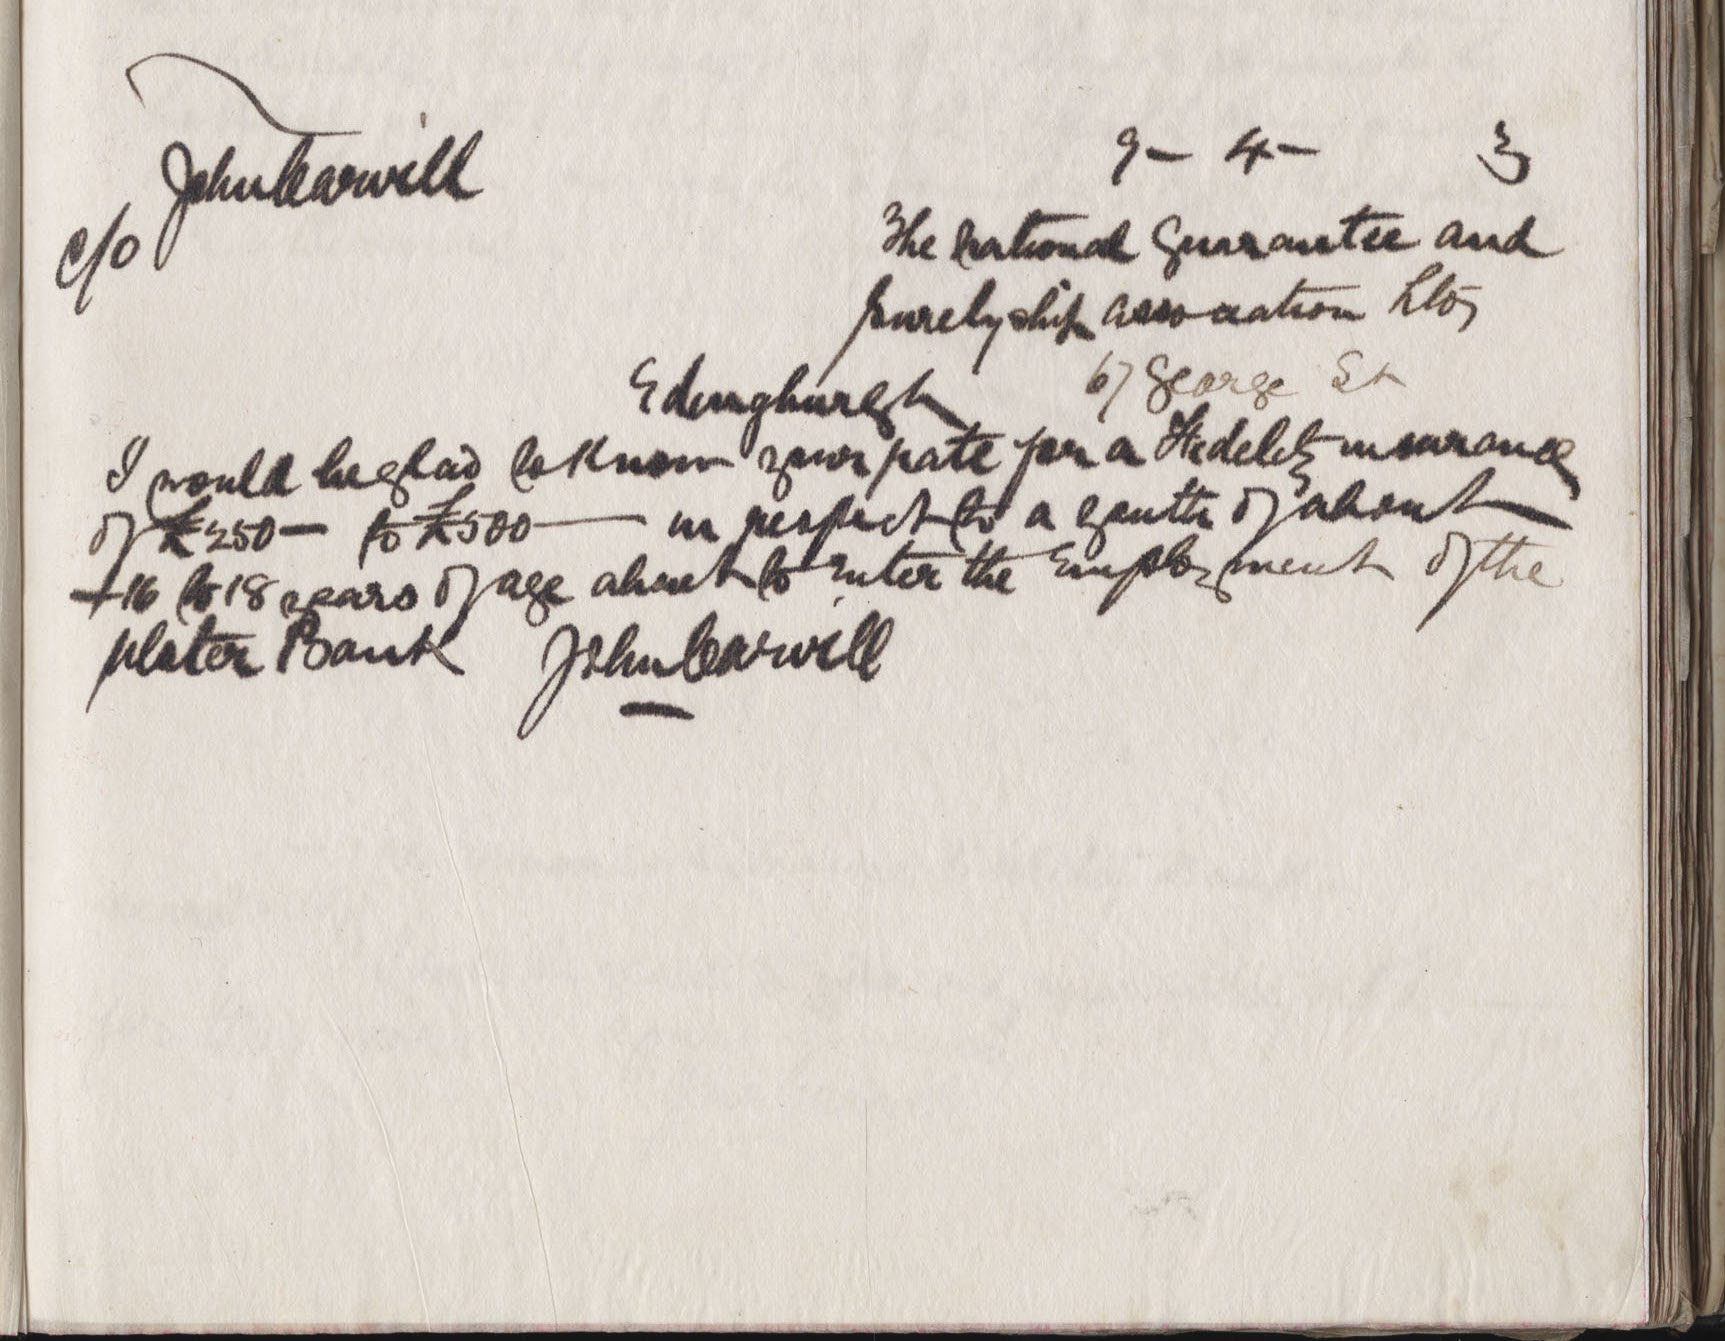 John Carvill
c/o
9 - 4 - 3
The National Guarantee and
Suretyship Association Ltd
67 George St
Edinghurgh
I would be glad to know your rate for a Fidelity insurance
of £250 - to £500 - in respect to a youth of about
16 to 18 years of age about to enter the Employment of the
Ulster Bank John Carvill